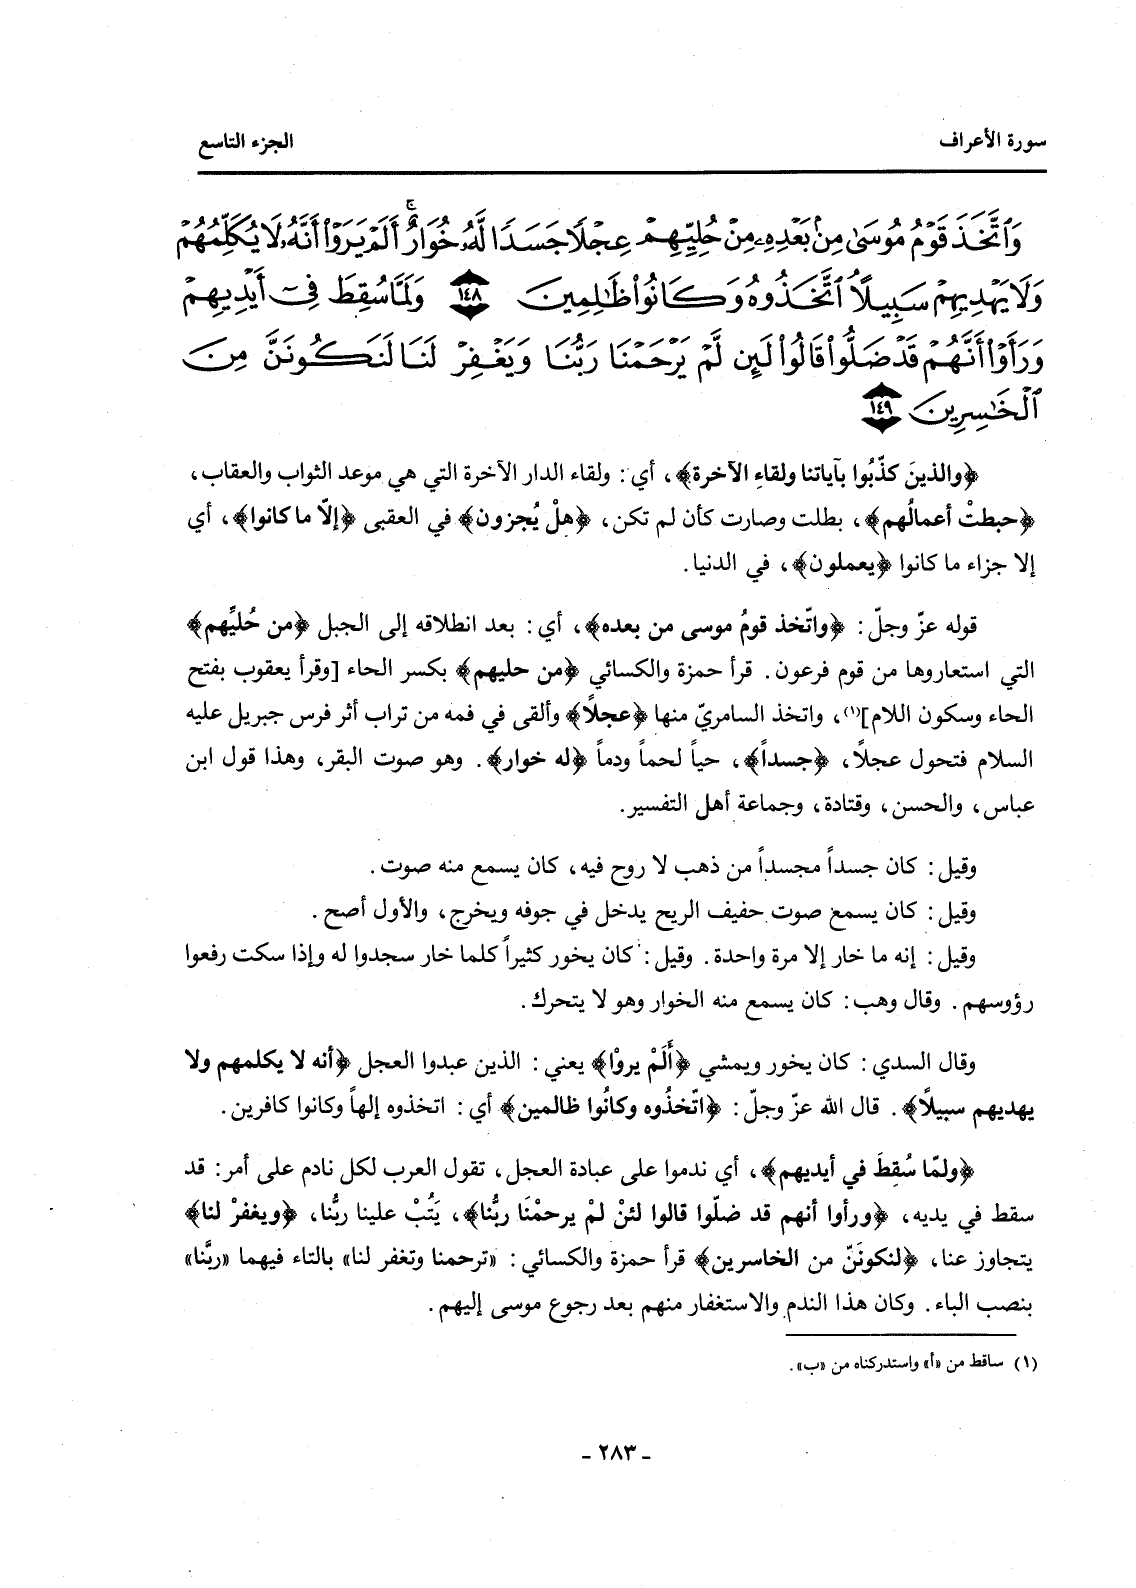 سورة الأعراف
الجزء التاسع
وَاتَّخَذَ قَوْمُ مُوسَىٰ مِنۢ بَعْدِهِۦ مِنْ حُلِيِّهِمْ عِجْلًا جَسَدًا لَّهُۥ خُوَارٌ ۚ أَلَمْ يَرَوْا۟ أَنَّهُۥ لَا يُكَلِّمُهُمْ
وَلَا يَهْدِيهِمْ سَبِيلًا ٱتَّخَذُوهُ وَكَانُوا۟ ظَٰلِمِينَ ١٤٨ وَلَمَّا سُقِطَ فِىٓ أَيْدِيهِمْ
وَرَأَوْا۟ أَنَّهُمْ قَدْ ضَلُّوا۟ قَالُوا۟ لَئِن لَّمْ يَرْحَمْنَا رَبُّنَا وَيَغْفِرْ لَنَا لَنَكُونَنَّ مِنَ
ٱلْخَٰسِرِينَ ١٤٩
﴿والذينَ كذّبُوا بآياتنا ولقاءِ الآخرة﴾، أي: ولقاء الدار الآخرة التي هي موعد الثواب والعقاب،
﴿حبطتْ أعمالُهم﴾، بطلت وصارت كأن لم تكن، ﴿هلْ يُجزون﴾ في العقبى ﴿إلّا ما كانوا﴾، أي
إلا جزاء ما كانوا ﴿يعملون﴾، في الدنيا.
قوله عزّ وجلّ: ﴿واتّخذ قومُ موسى من بعده﴾، أي: بعد انطلاقه إلى الجبل ﴿من حُليِّهم﴾
التي استعاروها من قوم فرعون. قرأ حمزة والكسائي ﴿من حليهم﴾ بكسر الحاء [وقرأ يعقوب بفتح
الحاء وسكون اللام](١)، واتخذ السامريّ منها ﴿عجلًا﴾ وألقى في فمه من تراب أثر فرس جبريل عليه
السلام فتحول عجلًا، ﴿جسداً﴾، حياً لحماً ودماً ﴿له خوار﴾. وهو صوت البقر، وهذا قول ابن
عباس، والحسن، وقتادة، وجماعة أهل التفسير.
وقيل: كان جسداً مجسداً من ذهب لا روح فيه، كان يسمع منه صوت.
وقيل: كان يسمع صوت حفيف الريح يدخل في جوفه ويخرج، والأول أصح.
وقيل: إنه ما خار إلا مرة واحدة. وقيل: كان يخور كثيراً كلما خار سجدوا له وإذا سكت رفعوا
رؤوسهم. وقال وهب: كان يسمع منه الخوار وهو لا يتحرك.
وقال السدي: كان يخور ويمشي ﴿أَلَمْ يروْا﴾ يعني: الذين عبدوا العجل ﴿أنه لا يكلمهم ولا
يهديهم سبيلًا﴾. قال الله عزّ وجلّ: ﴿اتّخذُوه وكانُوا ظالمين﴾ أي: اتخذوه إلهاً وكانوا كافرين.
﴿ولمّا سُقِطَ في أيديهم﴾، أي ندموا على عبادة العجل، تقول العرب لكل نادم على أمر: قد
سقط في يديه، ﴿ورأوا أنهم قد ضلّوا قالوا لئنْ لمْ يرحمْنَا ربُّنا﴾، يَتُبْ علينا ربُّنا، ﴿ويغفرْ لنا﴾
يتجاوز عنا، ﴿لنكونَنّ من الخاسرين﴾ قرأ حمزة والكسائي: «ترحمنا وتغفر لنا» بالتاء فيهما «ربَّنا»
بنصب الباء. وكان هذا الندم والاستغفار منهم بعد رجوع موسى إليهم.
(١) ساقط من «أ» واستدركناه من «ب».
- ٢٨٣ -